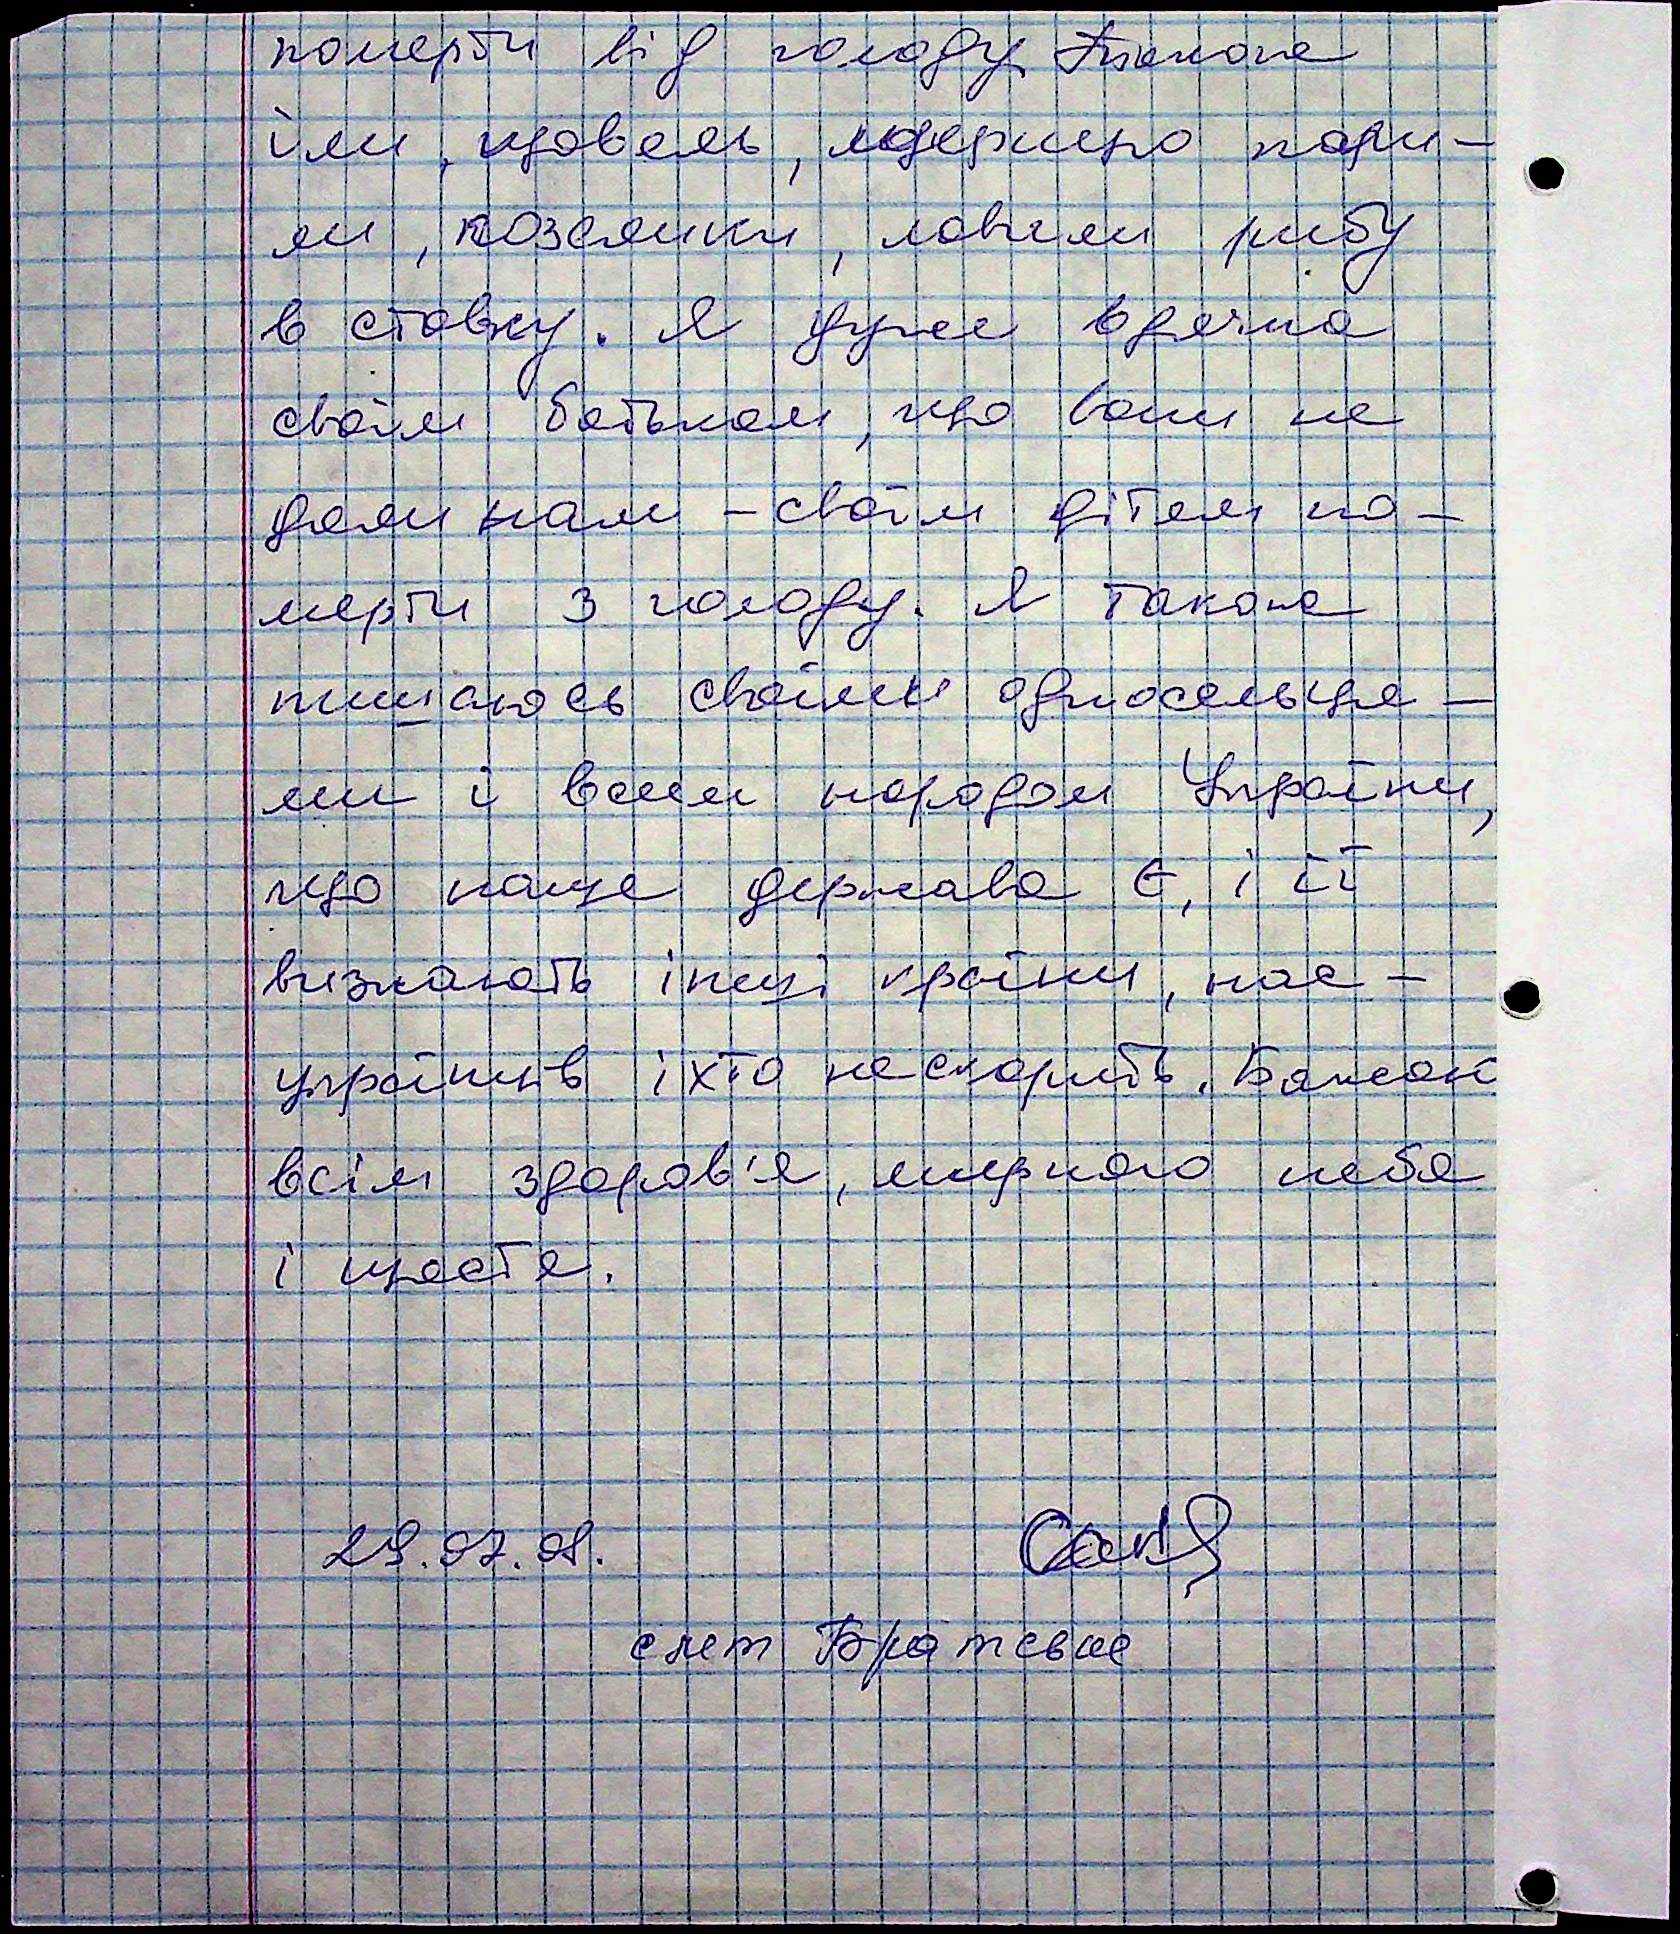 померти від голоду. Також
їли, щавель, людерцю пари-
ли, козелики, ловили рибу
в ставку. Я дуже вдячна
своїм батькам, що вони не
дали нам - своїм дітям по-
мерти з голоду. Я також
пишаюсь своїми односельця-
ми і всим народом України,
що наше держава є, і її
визнають інші країни, нас -
українців ніхто не скорить. Бажаю
всім здоров'я, мирного неба
і щастя.
29.07.08.
смт Братське